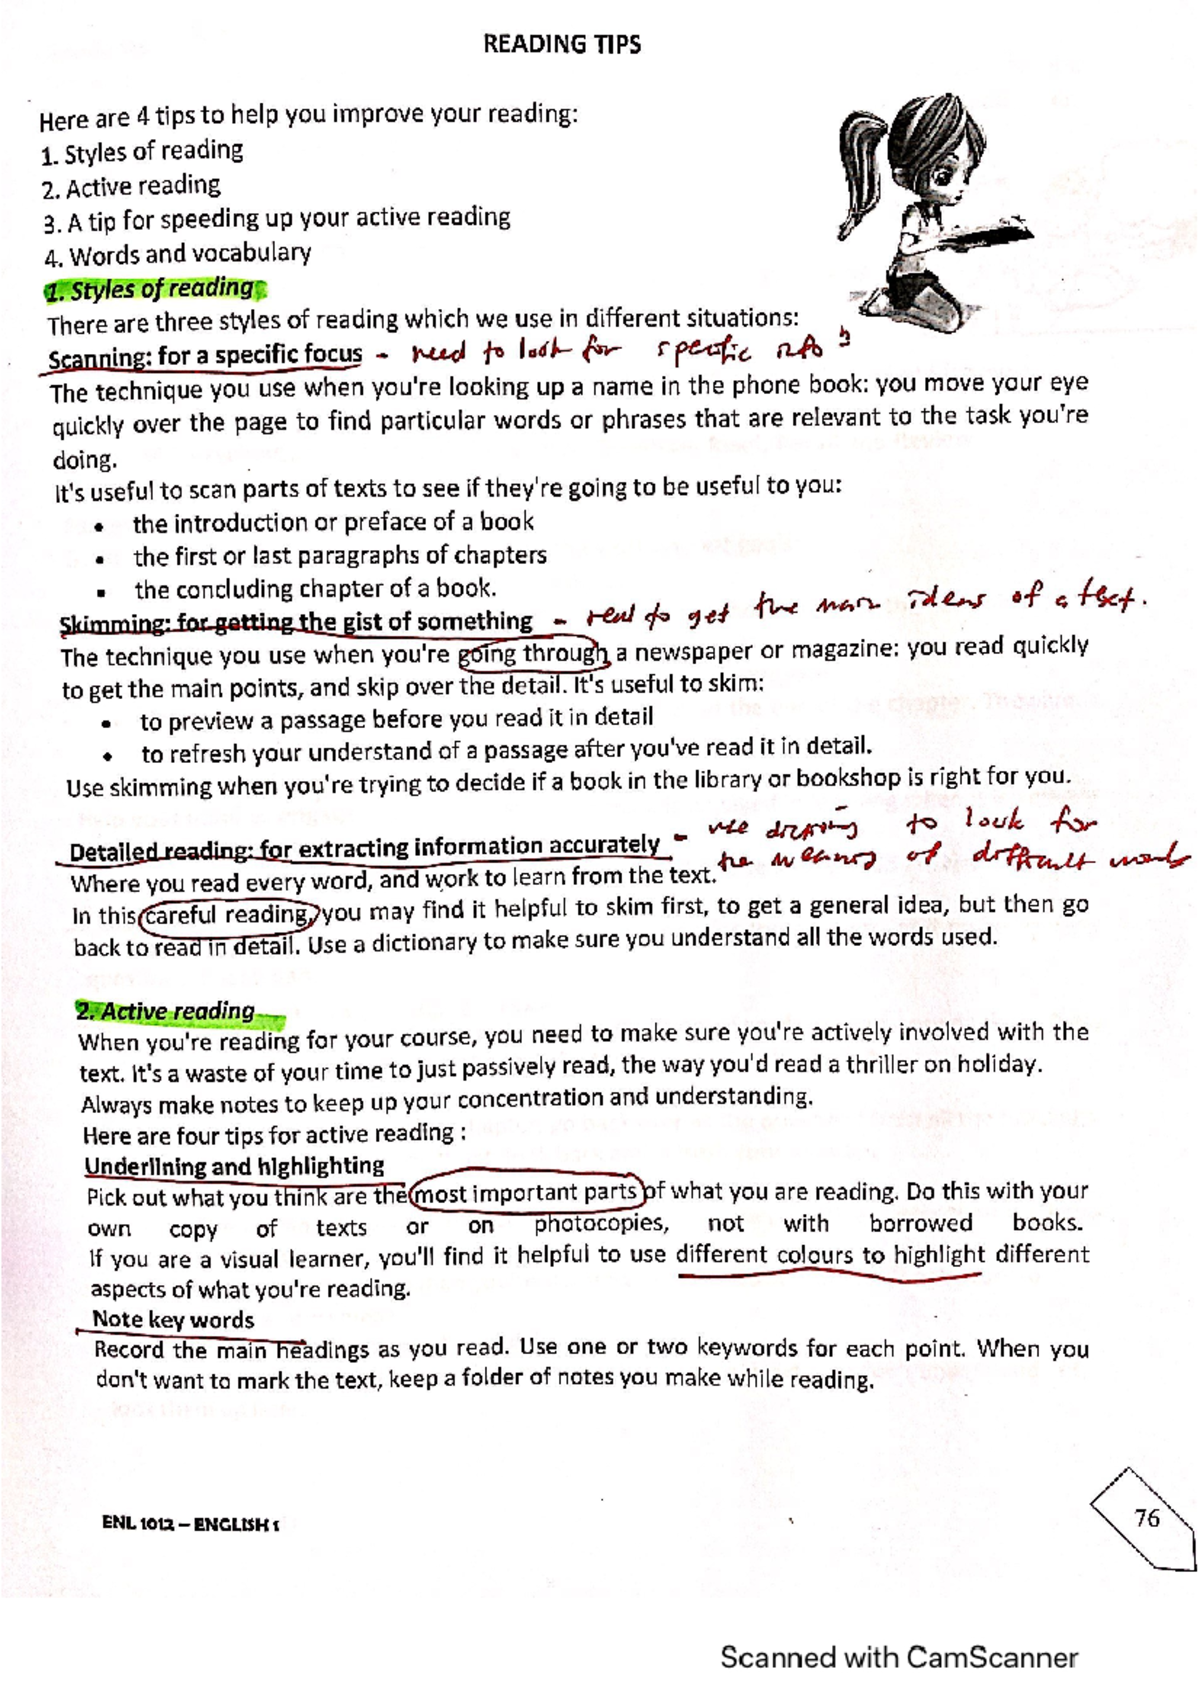 READING TIPS
Here are 4 tips to help you improve your reading:
1. Styles of reading
2. Active reading
3. A tip for speeding up your active reading
4. Words and vocabulary
1. Styles of reading
There are three styles of reading which we use in different situations:
Scanning: for a specific focus - need to look for specific info
The technique you use when you're looking up a name in the phone book: you move your eye
quickly over the page to find particular words or phrases that are relevant to the task you're
doing.
It's useful to scan parts of texts to see if they're going to be useful to you:
• the introduction or preface of a book
• the first or last paragraphs of chapters
• the concluding chapter of a book.
Skimming: for getting the gist of something - read to get the main ideas of a text.
The technique you use when you're going through a newspaper or magazine: you read quickly
to get the main points, and skip over the detail. It's useful to skim:
• to preview a passage before you read it in detail
• to refresh your understand of a passage after you've read it in detail.
Use skimming when you're trying to decide if a book in the library or bookshop is right for you.
Detailed reading: for extracting information accurately - use to look for
the meaning of difficult words
Where you read every word, and work to learn from the text.
In this careful reading, you may find it helpful to skim first, to get a general idea, but then go
back to read in detail. Use a dictionary to make sure you understand all the words used.
2. Active reading
When you're reading for your course, you need to make sure you're actively involved with the
text. It's a waste of your time to just passively read, the way you'd read a thriller on holiday.
Always make notes to keep up your concentration and understanding.
Here are four tips for active reading :
Underlining and highlighting
Pick out what you think are the most important parts of what you are reading. Do this with your
own copy of texts or on photocopies, not with borrowed books.
If you are a visual learner, you'll find it helpful to use different colours to highlight different
aspects of what you're reading.
Note key words
Record the main headings as you read. Use one or two keywords for each point. When you
don't want to mark the text, keep a folder of notes you make while reading.
ENL 1012 – ENGLISH 1
76
Scanned with CamScanner